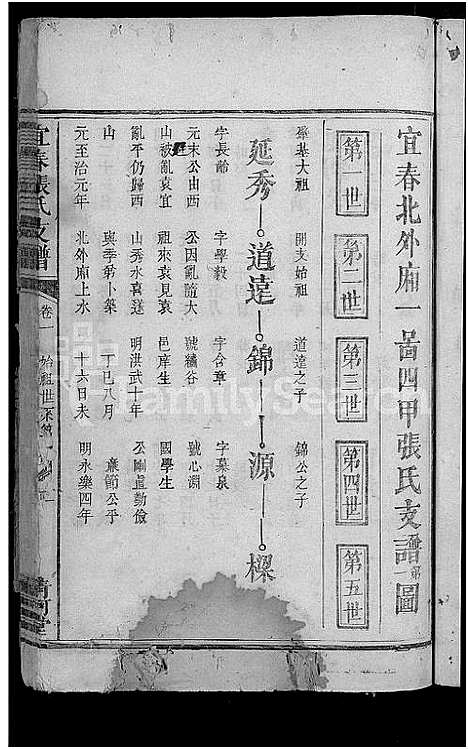 宜春北外廂一啚四甲張氏支譜圖
第一世
第二世
第三世
第四世
第五世
肇基大祖
開支始祖
道遠之子
錦公之子
延秀 道遠 錦 源 樑
字長齡
字學毅
字含章
字慕泉
元末公由西
公因亂隨大
號繡谷
號心淵
山被亂袁宜
祖來袁見袁
邑庠生
國學生
亂平仍歸西
山秀水喜遂
明洪武十年
公剛直勤儉
山
與季弟卜築
丁巳八月
義節公平
元至治元年
北外廂上水
十六日未
明永樂四年
宜春張氏支譜
卷一
始祖世系
清河堂
FamilySearch